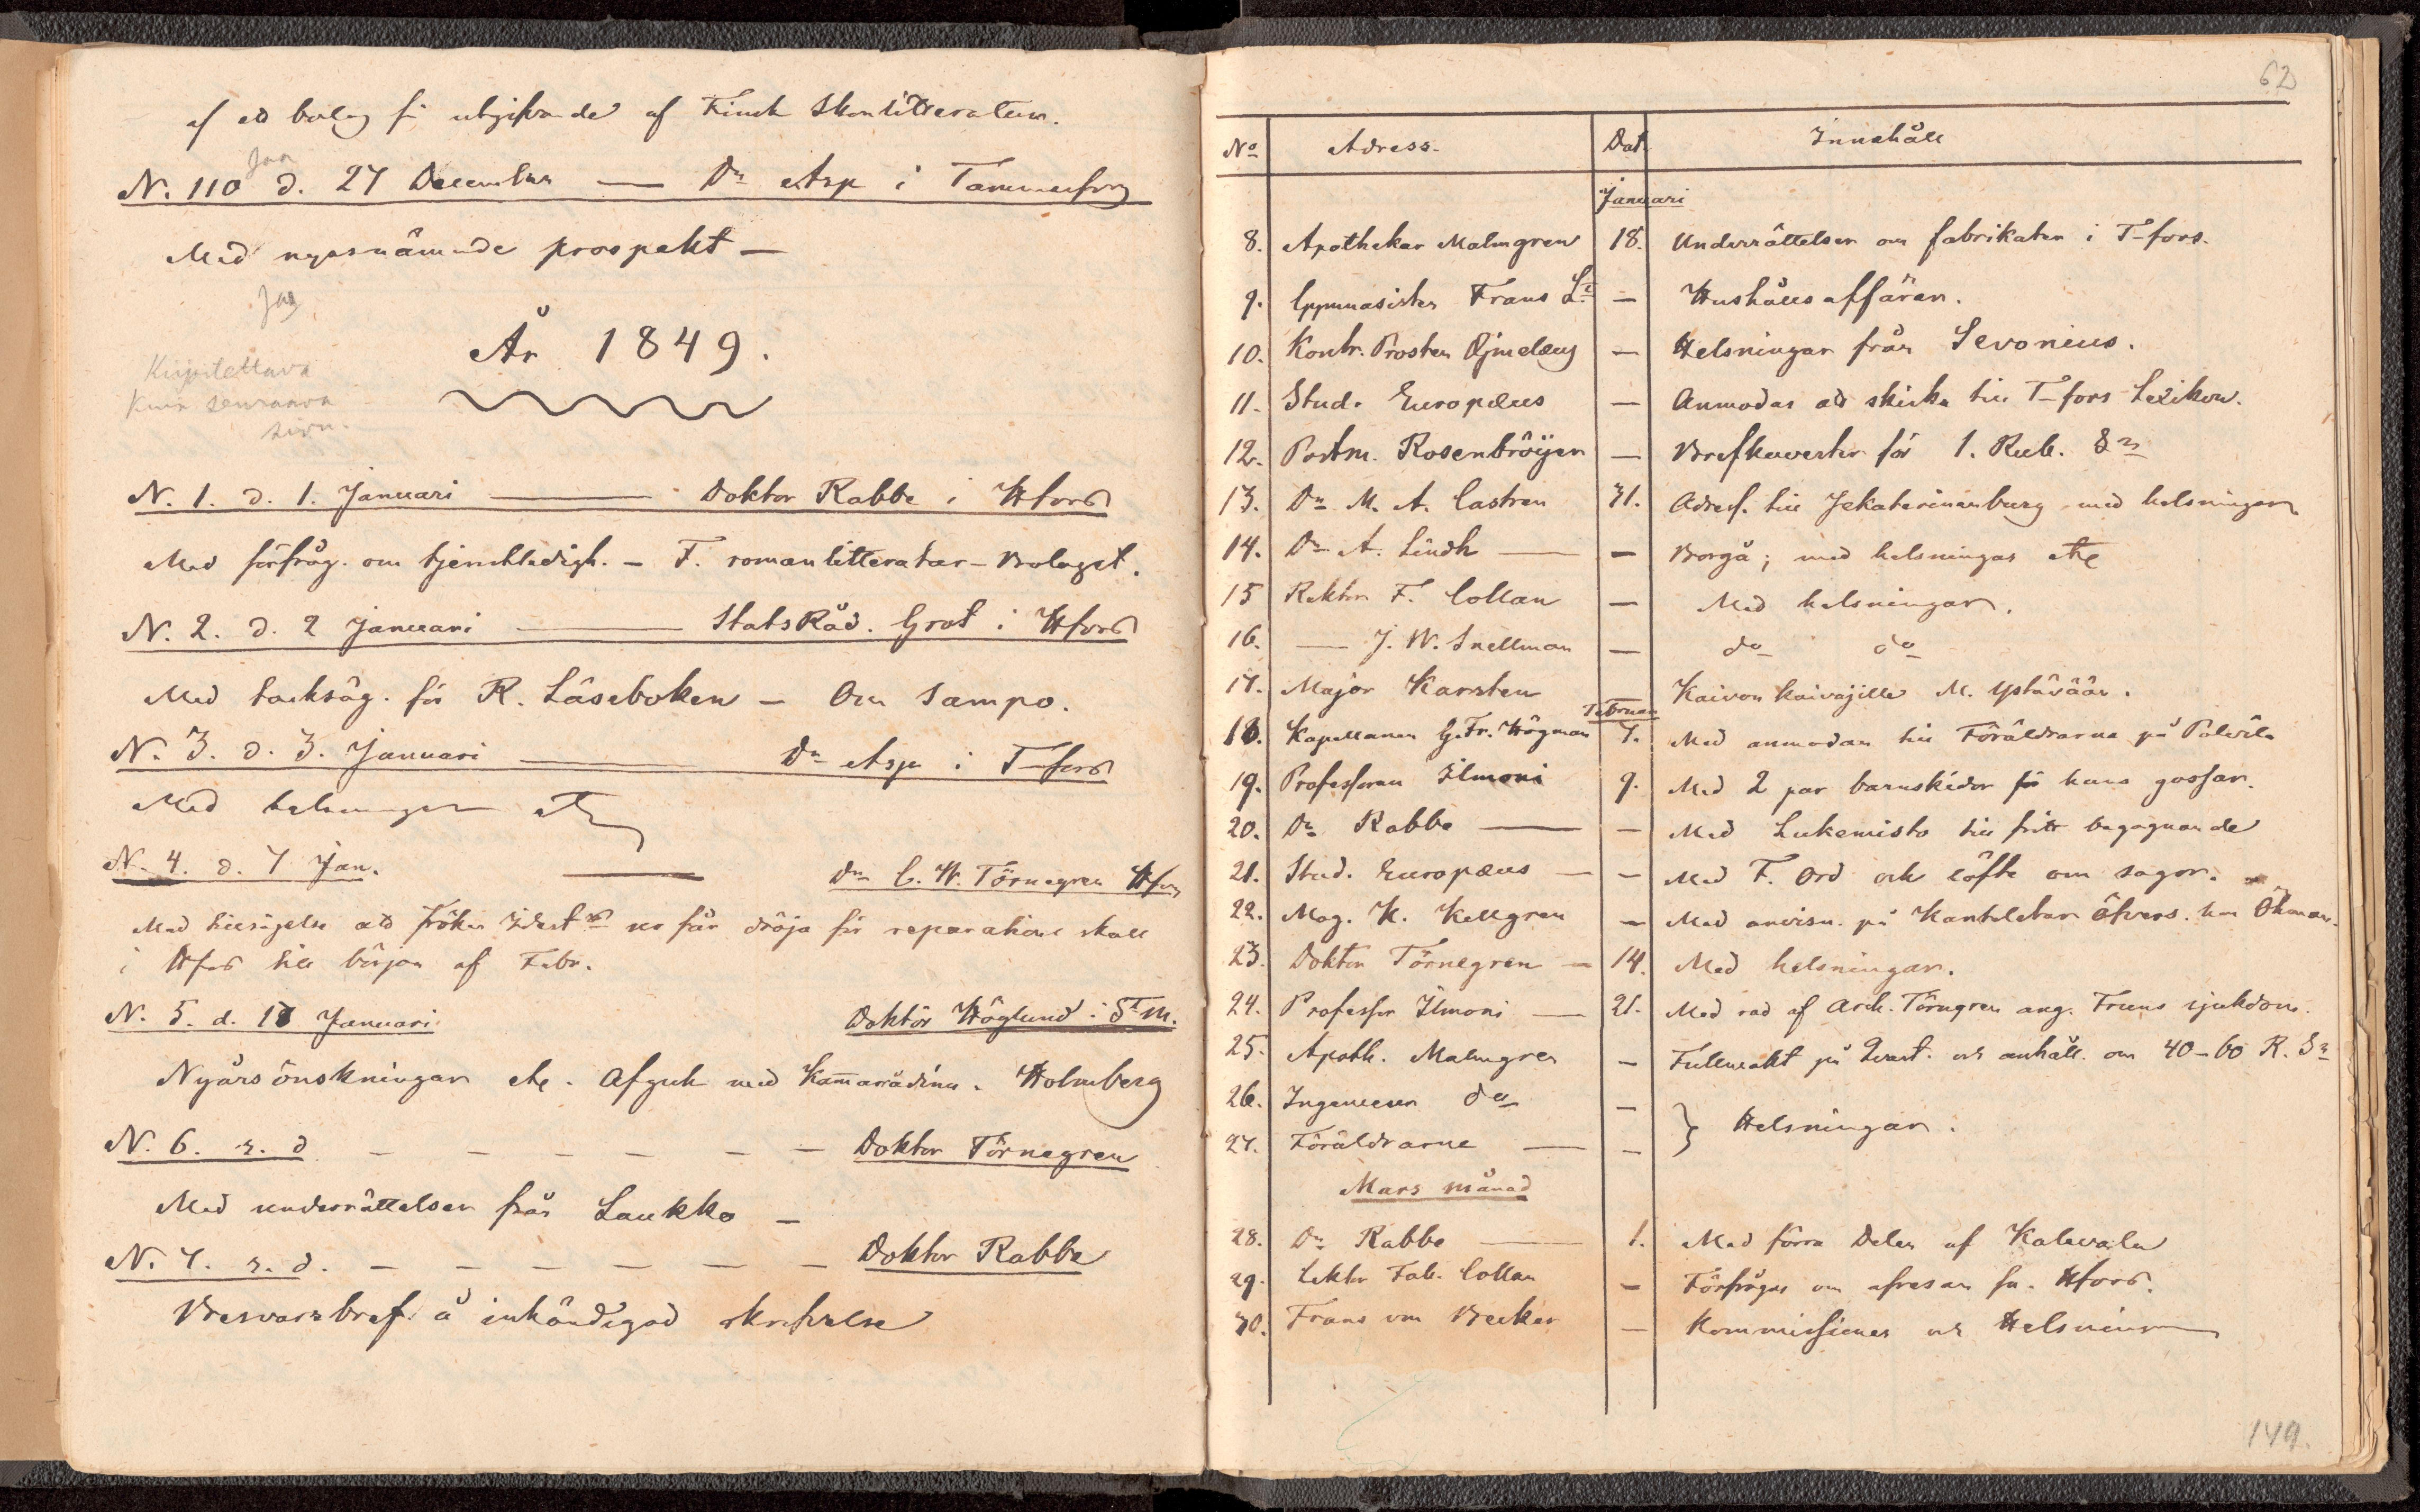 af ett bolag för utgifvande af Finsk Skönlitteratur.
Jaa
N. 110 d. 27 December — Dr Asp i Tammerfors
Med nyssnämnde prospekt —
Jaa
År 1849.
Kirjoitettava
kuin seuraava
sivu.
N. 1. d. 1. Januari — Doktor Rabbe i Hfors
Med förfråg. om tjenstledigh. – F. romanlitteratur-Bolaget.
N. 2. d. 2 Januari — StatsRåd. Grot i Hfors
Med tacksäg. för R. Läseboken – Om Sampo.
N. 3. d. 3. Januari — Dr Asp i T-fors
Med helsningar etc
N. 4. d. 7 Jan. — Dr C. W. Törnegren Hfors
Med tillsägelse att fröken får dröja för reparation skull
i Hfors till början af Febr.
N. 5. d. 18 Januari Doktor Höglund i St M.
Nyårsönskningar etc. Afgick med Kamarrådinn. Holmberg
N. 6. s. d — — — — — — Doktor Törnegren
Med underrättelser från Laukko –
N. 7. s. d. — — — — — — Doktor Rabbe
Besvarsbref å inhändigad skrifvelse
62
No Adress. Dat. Innehåll
Januari
8. Apothekar Malmgren 18. Underrättelser om fabrikater i T-fors.
9. Gymnasisten Frans Lt — Hushållsaffärer.
10. Kontr. Prosten Ajmelæus — Helsningar från Sevonius.
11. Stud. Europæus — Anmodas att skicka till T-fors Lexikon.
12. Postm. Rosenbröijer — Brefkuverter för 1. Rub. Sr
13. Dr M. A. Castren 31. Adress. till Jekaterinenburg med helsningar
14. Dr A. Lindh — — Borgå; med helsningar etc
15 Rektor F. Collan — Med helsningar.
16. — J. W. Snellman — do do
17. Major Karsten Kaivon kaivajille M. ystävään.
Februari
18. Kapellanen G. Fr. Högman 7. Med anmodan till Föräldrarne på Polvila
19. Professoren Ilmoni 9. Med 2 par barnskidor för hans gossar.
20. Dr Rabbe — — Med Lukemisto till fritt begagnande
21. Stud. Europæus — — Med F. Ord och löfte om sagor.
22. Mag. H. Kellgren — Med anvisn. på Kanteletar öfvers. hos Öhman.
23. Doktor Törnegren — 14. Med helsningar.
24. Professor Ilmoni — 21. Med rad af Arch. Törngren ang. Fruns sjukdom.
25. Apoth. Malmgren — Fullmakt på Qvart. och anhåll. om 40–60 R. Sr
26. Ingenieuren do — } Helsningar.
27. Föräldrarne — —
Mars månad
28. Dr Rabbe — 1. Med förra Delen af Kalevala
29. Lektor Fab. Collan — Förfrågan om afresan fr. Hfors.
30. Frans von Becker — Kommissioner och Helsningar
149.